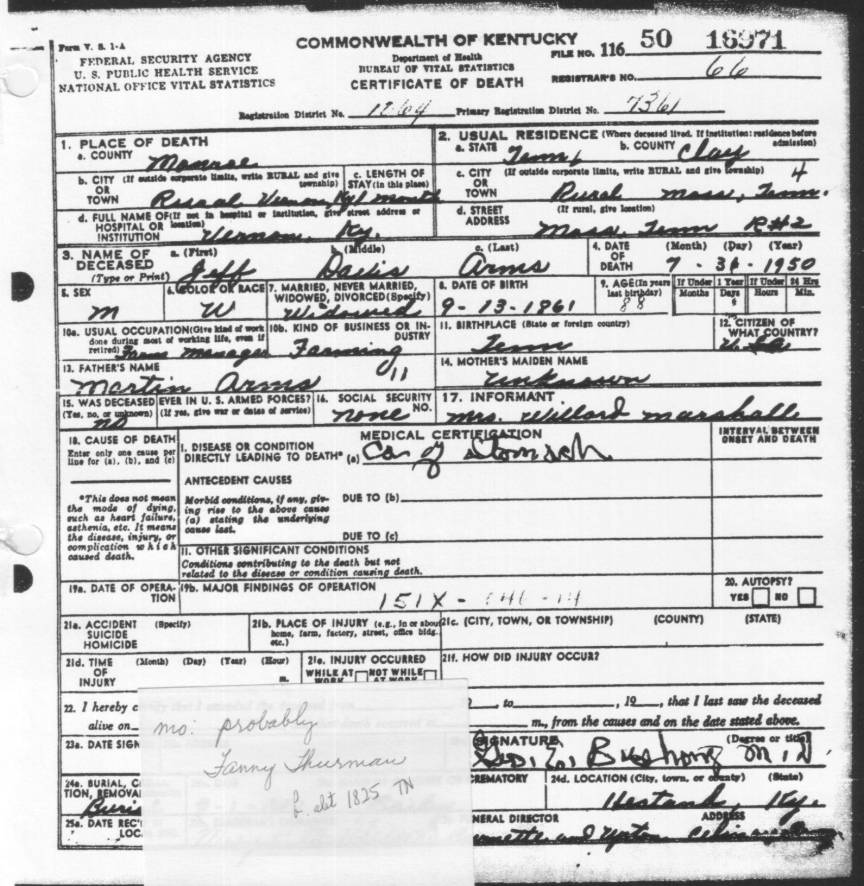 Form V. S. 1-A
COMMONWEALTH OF KENTUCKY
FEDERAL SECURITY AGENCY
U. S. PUBLIC HEALTH SERVICE
NATIONAL OFFICE VITAL STATISTICS
Department of Health
BUREAU OF VITAL STATISTICS
CERTIFICATE OF DEATH
FILE NO. 116 50 16971
REGISTRAR'S NO. 66
Registration District No. 1264 Primary Registration District No. 7361
1. PLACE OF DEATH
a. COUNTY Monroe
b. CITY (If outside corporate limits, write RURAL and give township)
OR
TOWN Rural Vernon, Ky
c. LENGTH OF STAY (in this place)
1 month
d. FULL NAME OF (If not in hospital or institution, give street address or location)
HOSPITAL OR
INSTITUTION Vernon, Ky.
2. USUAL RESIDENCE (Where deceased lived. If institution: residence before admission)
a. STATE Tenn, b. COUNTY Clay
c. CITY (If outside corporate limits, write RURAL and give township) 4
OR
TOWN Rural Moss, Tenn.
d. STREET (If rural, give location)
ADDRESS Moss, Tenn R#2
3. NAME OF DECEASED
(Type or Print)
a. (First) b. (Middle) c. (Last)
Jeff Davis Arms
4. DATE OF DEATH
(Month) (Day) (Year)
7 - 31 - 1950
5. SEX
M
6. COLOR OR RACE
W
7. MARRIED, NEVER MARRIED, WIDOWED, DIVORCED (Specify)
Widowed
8. DATE OF BIRTH
9-13-1861
9. AGE (In years last birthday)
88
If Under 1 Year
Months Days
If Under 24 Hrs
Hours Min.
10a. USUAL OCCUPATION (Give kind of work done during most of working life, even if retired)
Farm Manager
10b. KIND OF BUSINESS OR INDUSTRY
Farming
11. BIRTHPLACE (State or foreign country)
Tenn
12. CITIZEN OF WHAT COUNTRY?
13. FATHER'S NAME
Martin Arms 11
14. MOTHER'S MAIDEN NAME
Unknown
15. WAS DECEASED EVER IN U. S. ARMED FORCES?
(Yes, no, or unknown) (If yes, give war or dates of service)
no
16. SOCIAL SECURITY NO.
none
17. INFORMANT
Mrs. Willard Marshall
18. CAUSE OF DEATH
Enter only one cause per line for (a), (b), and (c)
*This does not mean the mode of dying, such as heart failure, asthenia, etc. It means the disease, injury, or complication which caused death.
MEDICAL CERTIFICATION
INTERVAL BETWEEN ONSET AND DEATH
I. DISEASE OR CONDITION
DIRECTLY LEADING TO DEATH* (a) Ca of Stomach
ANTECEDENT CAUSES
Morbid conditions, if any, giving rise to the above cause (a) stating the underlying cause last.
DUE TO (b)
DUE TO (c)
II. OTHER SIGNIFICANT CONDITIONS
Conditions contributing to the death but not related to the disease or condition causing death.
19a. DATE OF OPERATION
19b. MAJOR FINDINGS OF OPERATION
151X
20. AUTOPSY?
YES NO
21a. ACCIDENT (Specify)
SUICIDE
HOMICIDE
21b. PLACE OF INJURY (e.g., in or about home, farm, factory, street, office bldg. etc.)
21c. (CITY, TOWN, OR TOWNSHIP) (COUNTY) (STATE)
21d. TIME (Month) (Day) (Year) (Hour)
OF
INJURY m.
21e. INJURY OCCURRED
WHILE AT WORK NOT WHILE AT WORK
21f. HOW DID INJURY OCCUR?
22. I hereby c
to , 19 , that I last saw the deceased
alive on m., from the causes and on the date stated above.
23a. DATE SIGN
SIGNATURE (Degree or title)
Bushong M.D
mo: probably
Fanny Thurman
b abt 1825 TN
24a. BURIAL, C
TION, REMOVA
Buri
REMATORY
24d. LOCATION (City, town, or county) (State)
Hestand, Ky.
25a. DATE REC'
LOC
NERAL DIRECTOR ADDRESS
and Upton Celina